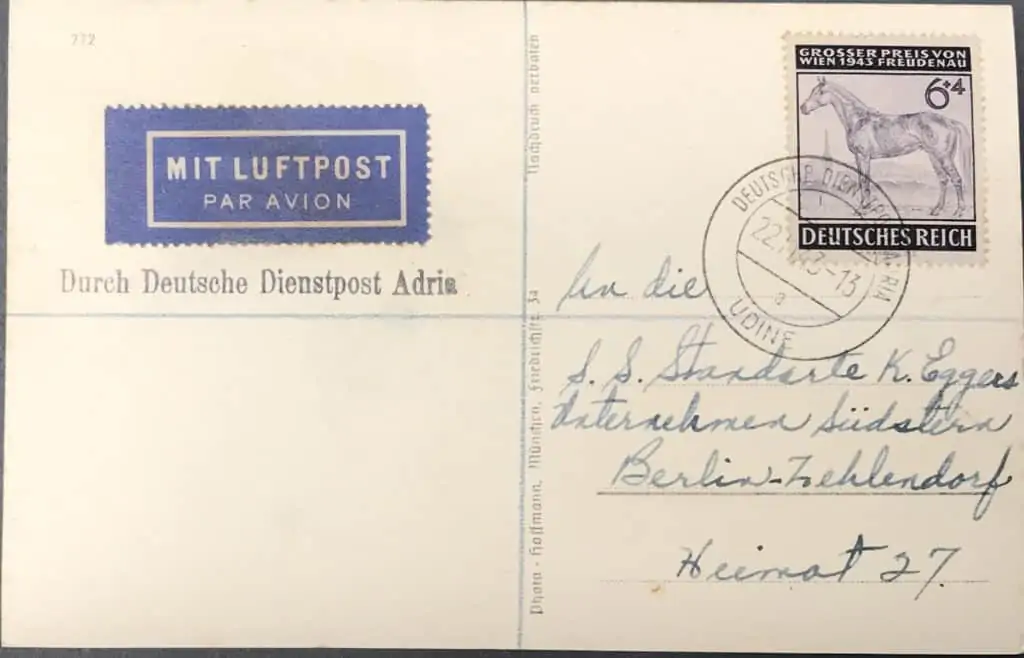 772
MIT LUFTPOST
PAR AVION
Durch Deutsche Dienstpost Adria
Nachdruck verboten
Photo-Hoffmann, München, Friedrichstr. 3a
GROSSER PREIS VON
WIEN 1943 FREUDENAU
6+4
DEUTSCHES REICH
DEUTSCHE DIENSTPOST ADRIA
43-13
a
UDINE
An die
S. S. Standarte K. Eggers
Unternehmen Südstern
Berlin-Zehlendorf
Heimat 27.